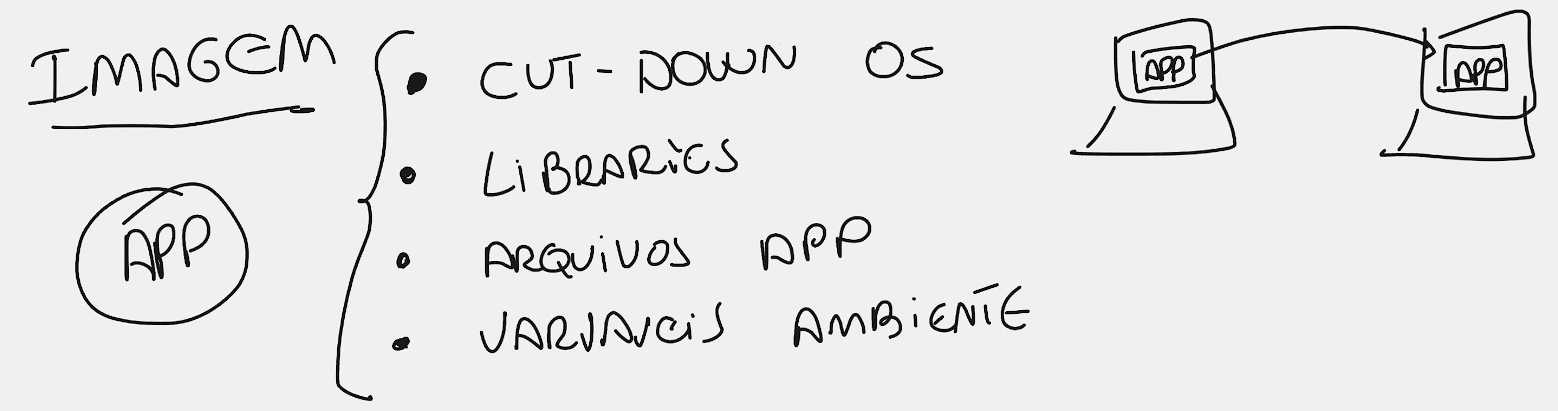 IMAGEM
APP
• CUT-DOWN OS
• LIBRARIES
• ARQUIVOS APP
• VARIAVEIS AMBIENTE
APP
APP